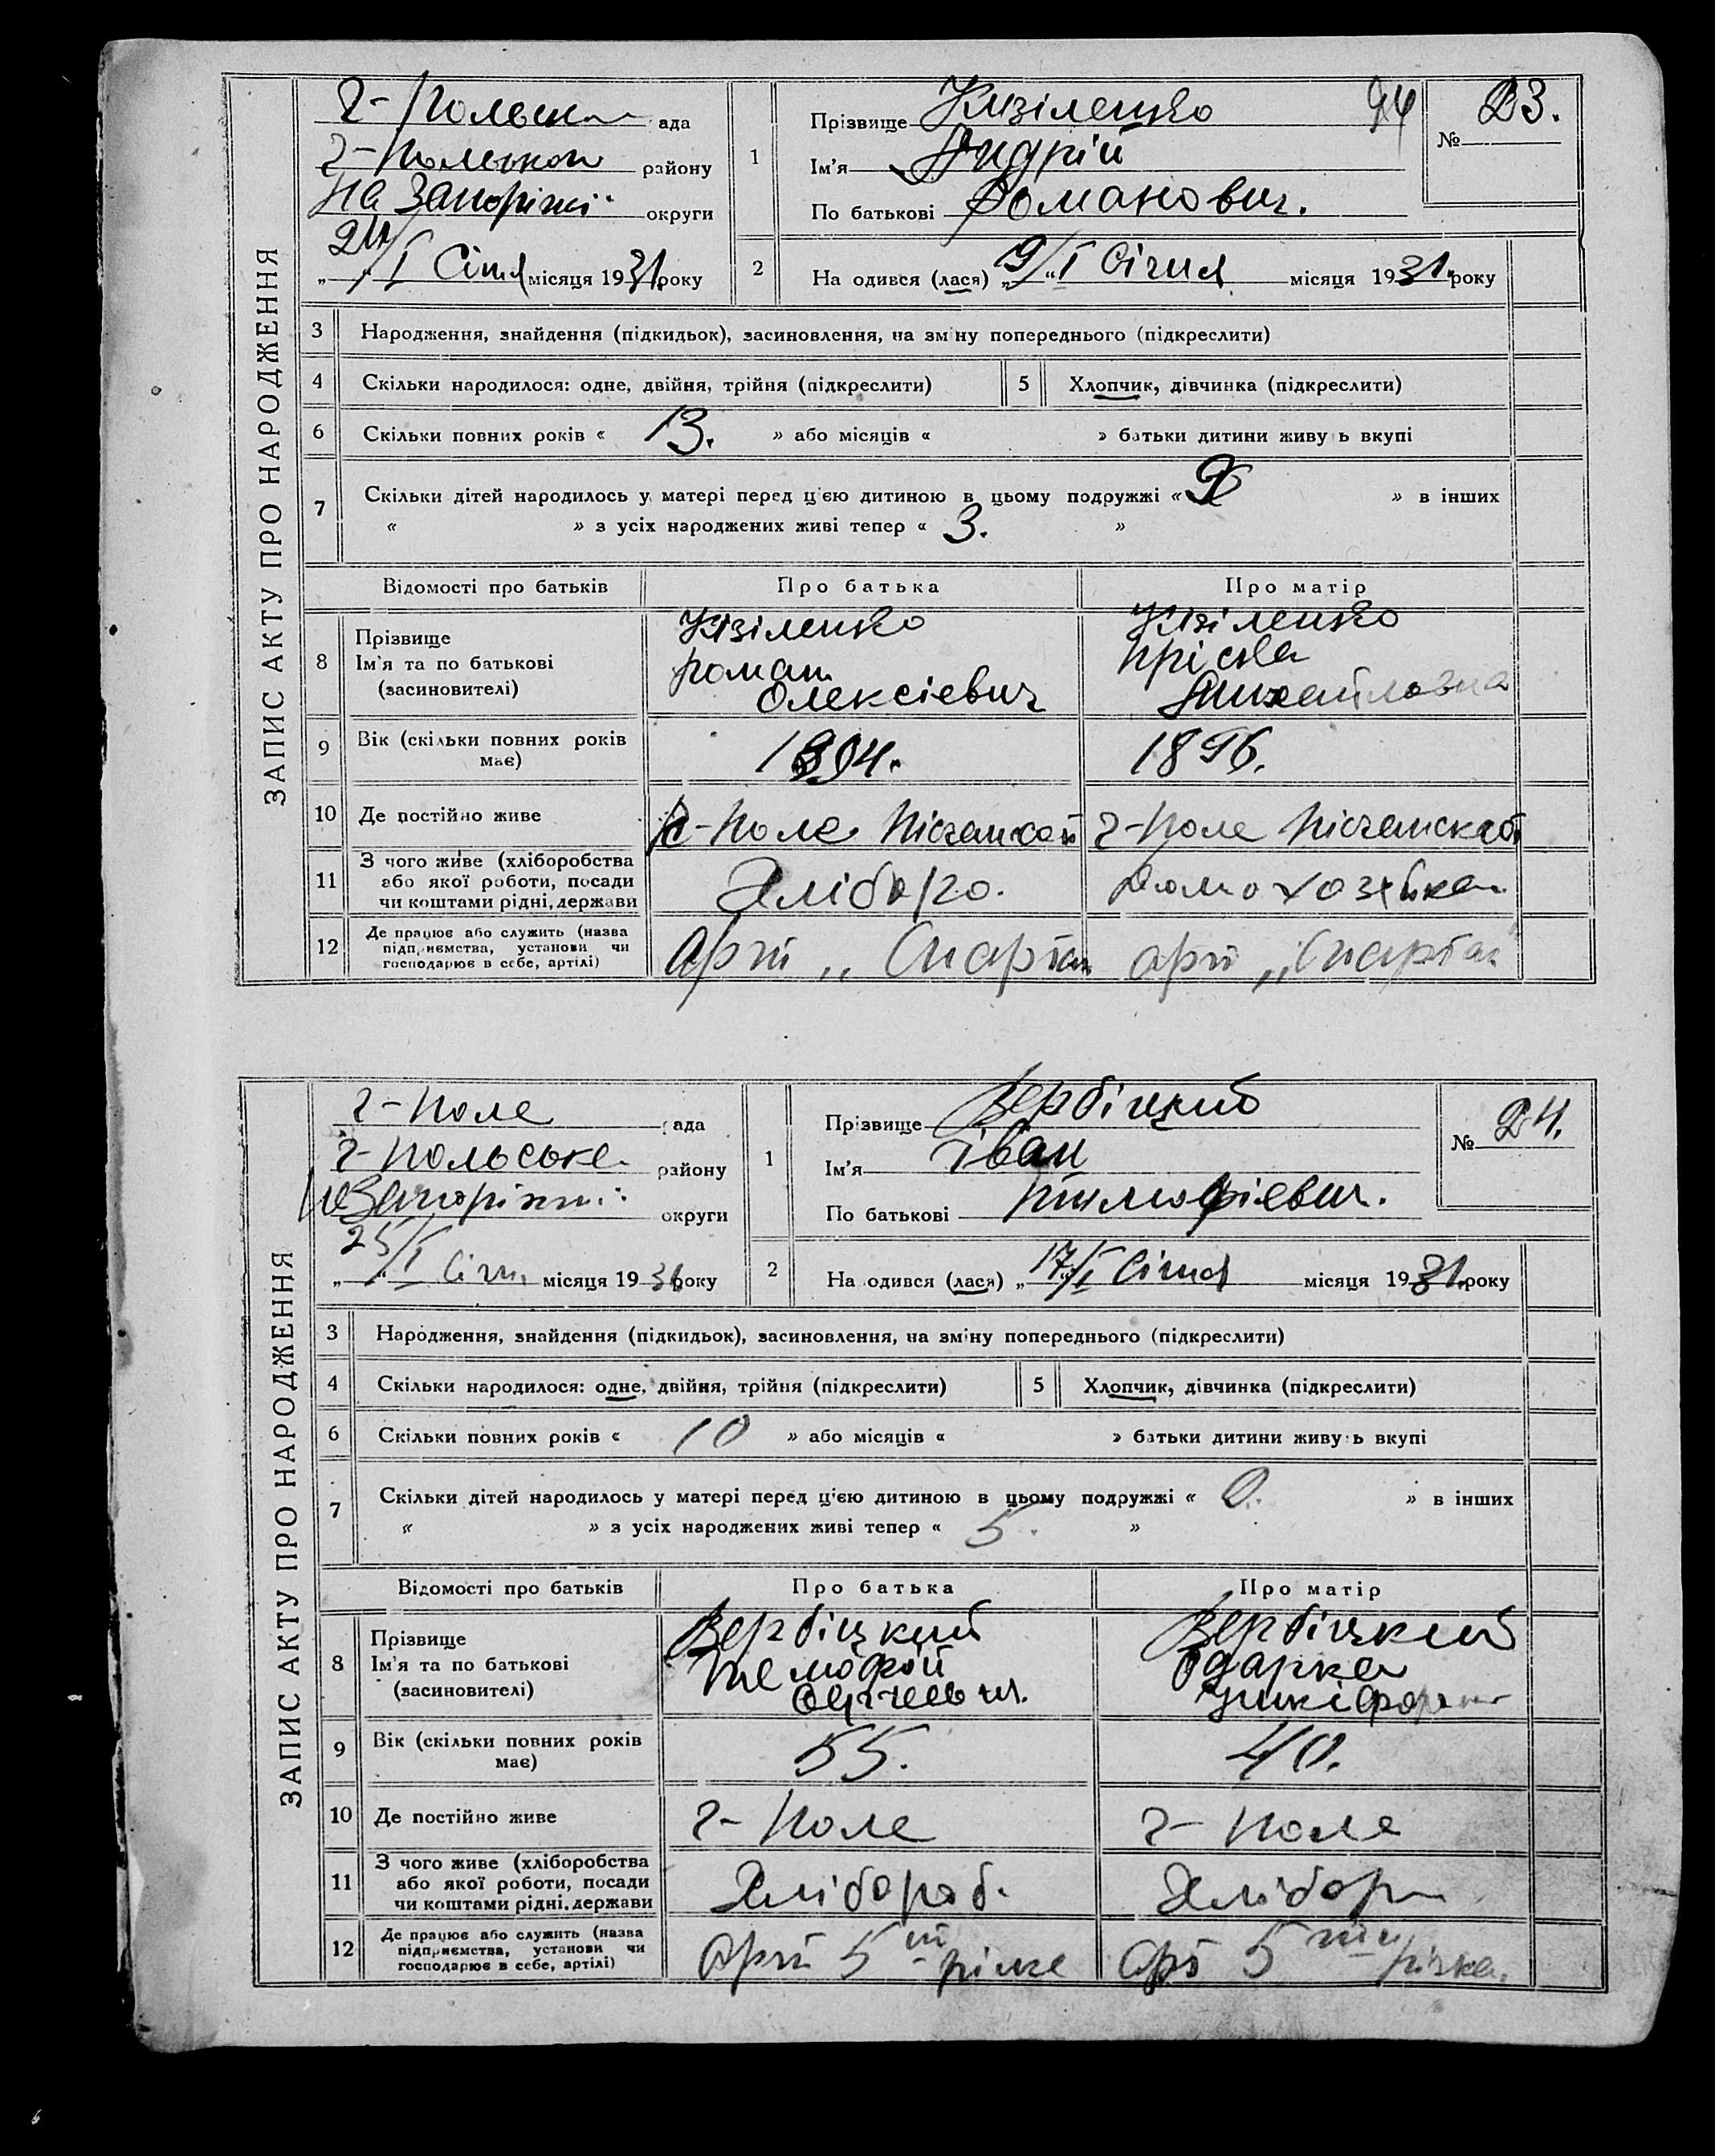 ЗАПИС АКТУ ПРО НАРОДЖЕННЯ
Г-Польська ада
Г-Польского району
на Запоріжі округи
„24/I“ Січня місяця 1931 року
1
Прізвище Кізіленко 94
Ім'я Андрій
По батькові Романович.
№ 23.
2
На одився (лася) „9/I“ Січня місяця 1931. року
3 Народження, знайдення (підкидьок), засиновлення, на зміну попереднього (підкреслити)
4 Скільки народилося: одне, двійня, трійня (підкреслити)
5 Хлопчик, дівчинка (підкреслити)
6 Скільки повних років « 13. » або місяців « » батьки дитини живу ь вкупі
7 Скільки дітей народилось у матері перед ц'єю дитиною в цьому подружжі « » в інших
« » з усіх народжених живі тепер « 3. »
Відомості про батьків Про батька Про матір
8 Прізвище
Ім'я та по батькові
(засиновителі)
Кізіленко
роман
Олексієвич
Кізіленко
Пріська
Михайловна
9 Вік (скільки повних років
має)
1894. 1896.
10 Де постійно живе Г-Поле Пісчанской Г-Поле Пісчанской
11 З чого живе (хліборобства
або якої роботи, посади
чи коштами рідні, держави
Хліборо. Домохозяйка
12 Де працює або служить (назва
підприємства, установи чи
господарює в себе, артілі)
Арт „Спартак Арт „Спартак“
ЗАПИС АКТУ ПРО НАРОДЖЕННЯ
Г-Поле ада
Г-Польське району
на Запоріжжі округи
„25/I“ Січн місяця 1931 року
1
Прізвище Вербіцкий
Ім'я Іван
По батькові Тимофієвич.
№ 24.
2
На одився (лася) „17/I“ Січня місяця 1931. року
3 Народження, знайдення (підкидьок), засиновлення, на зміну попереднього (підкреслити)
4 Скільки народилося: одне, двійня, трійня (підкреслити)
5 Хлопчик, дівчинка (підкреслити)
6 Скільки повних років « 10 » або місяців « » батьки дитини живу ь вкупі
7 Скільки дітей народилось у матері перед ц'єю дитиною в цьому подружжі « 0. » в інших
« » з усіх народжених живі тепер « 5. »
Відомості про батьків Про батька Про матір
8 Прізвище
Ім'я та по батькові
(засиновителі)
Вербіцкий
Темофій
Вербіцкий
Одарка
Никіфоро
9 Вік (скільки повних років
має)
55. 40.
10 Де постійно живе Г-Поле Г-Поле
11 З чого живе (хліборобства
або якої роботи, посади
чи коштами рідні, держави
Хлібороб. Хлібор
12 Де працює або служить (назва
підприємства, установи чи
господарює в себе, артілі)
Арт 5 річка Арт 5 річка.